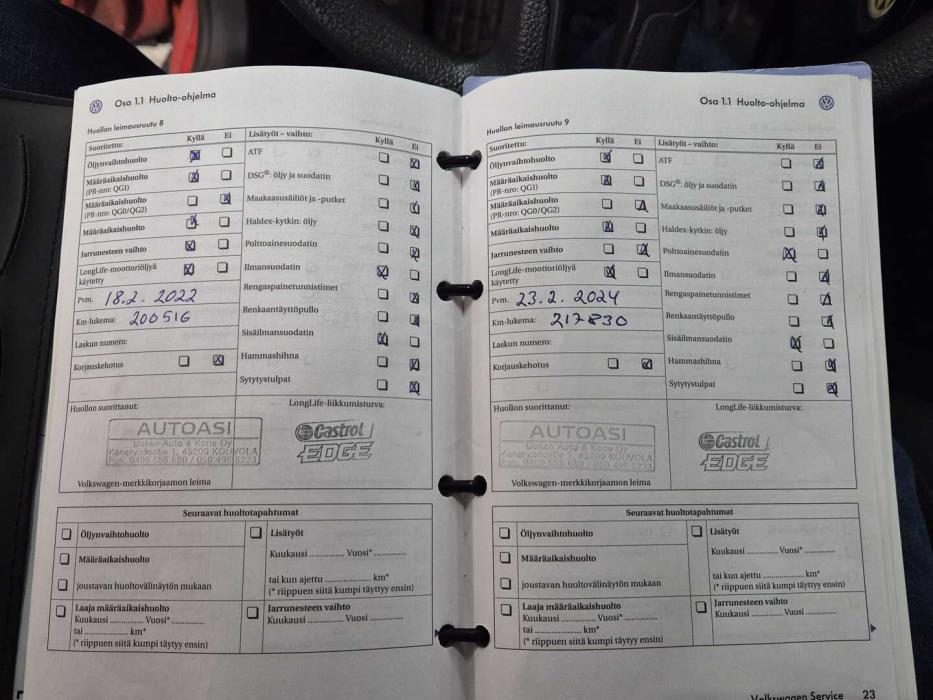 Osa 1.1 Huolto-ohjelma
Huollon leimausruutu 8
Suoritettu: Kyllä Ei
Öljynvaihtohuolto
Määräaikaishuolto
(PR-nro: QG1)
Määräaikaishuolto
(PR-nro: QG0/QG2)
Määräaikaishuolto
Jarrunesteen vaihto
LongLife-moottoriöljyä
käytetty
Pvm. 18.2. 2022
Km-lukema: 200516
Laskun numero:
Korjauskehotus
Lisätyöt – vaihto: Kyllä Ei
ATF
DSG®: öljy ja suodatin
Maakaasusäiliöt ja -putket
Haldex-kytkin: öljy
Polttoainesuodatin
Ilmansuodatin
Rengaspainetunnistimet
Renkaantäyttöpullo
Sisäilmansuodatin
Hammashihna
Sytytystulpat
Huollon suorittanut:
AUTOASI
Uoken Auto & Kone Oy
45200 KOUVOLA
LongLife-liikkumisturva:
Castrol
EDGE
Volkswagen-merkkikorjaamon leima
Seuraavat huoltotapahtumat
Öljynvaihtohuolto
Määräaikaishuolto
joustavan huoltovälinäytön mukaan
Laaja määräaikaishuolto
Kuukausi ............ Vuosi* ............
tai ............ km*
(* riippuen siitä kumpi täytyy ensin)
Lisätyöt
Kuukausi ............ Vuosi* ............
tai kun ajettu ............ km*
(* riippuen siitä kumpi täyttyy ensin)
Jarrunesteen vaihto
Kuukausi ............ Vuosi ............
Osa 1.1 Huolto-ohjelma
Huollon leimausruutu 9
Suoritettu: Kyllä Ei
Öljynvaihtohuolto
Määräaikaishuolto
(PR-nro: QG1)
Määräaikaishuolto
(PR-nro: QG0/QG2)
Määräaikaishuolto
Jarrunesteen vaihto
LongLife-moottoriöljyä
käytetty
Pvm. 23.2. 2024
Km-lukema: 217830
Laskun numero:
Korjauskehotus
Lisätyöt – vaihto: Kyllä Ei
ATF
DSG®: öljy ja suodatin
Maakaasusäiliöt ja -putket
Haldex-kytkin: öljy
Polttoainesuodatin
Ilmansuodatin
Rengaspainetunnistimet
Renkaantäyttöpullo
Sisäilmansuodatin
Hammashihna
Sytytystulpat
Huollon suorittanut:
AUTOASI
Uoken Auto & Kone Oy
45200 KOUVOLA
LongLife-liikkumisturva:
Castrol
EDGE
Volkswagen-merkkikorjaamon leima
Seuraavat huoltotapahtumat
Öljynvaihtohuolto
Määräaikaishuolto
joustavan huoltovälinäytön mukaan
Laaja määräaikaishuolto
Kuukausi ............ Vuosi* ............
tai ............ km*
(* riippuen siitä kumpi täytyy ensin)
Lisätyöt
Kuukausi ............ Vuosi* ............
tai kun ajettu ............ km*
(* riippuen siitä kumpi täyttyy ensin)
Jarrunesteen vaihto
Kuukausi ............ Vuosi ............
Volkswagen Service 23